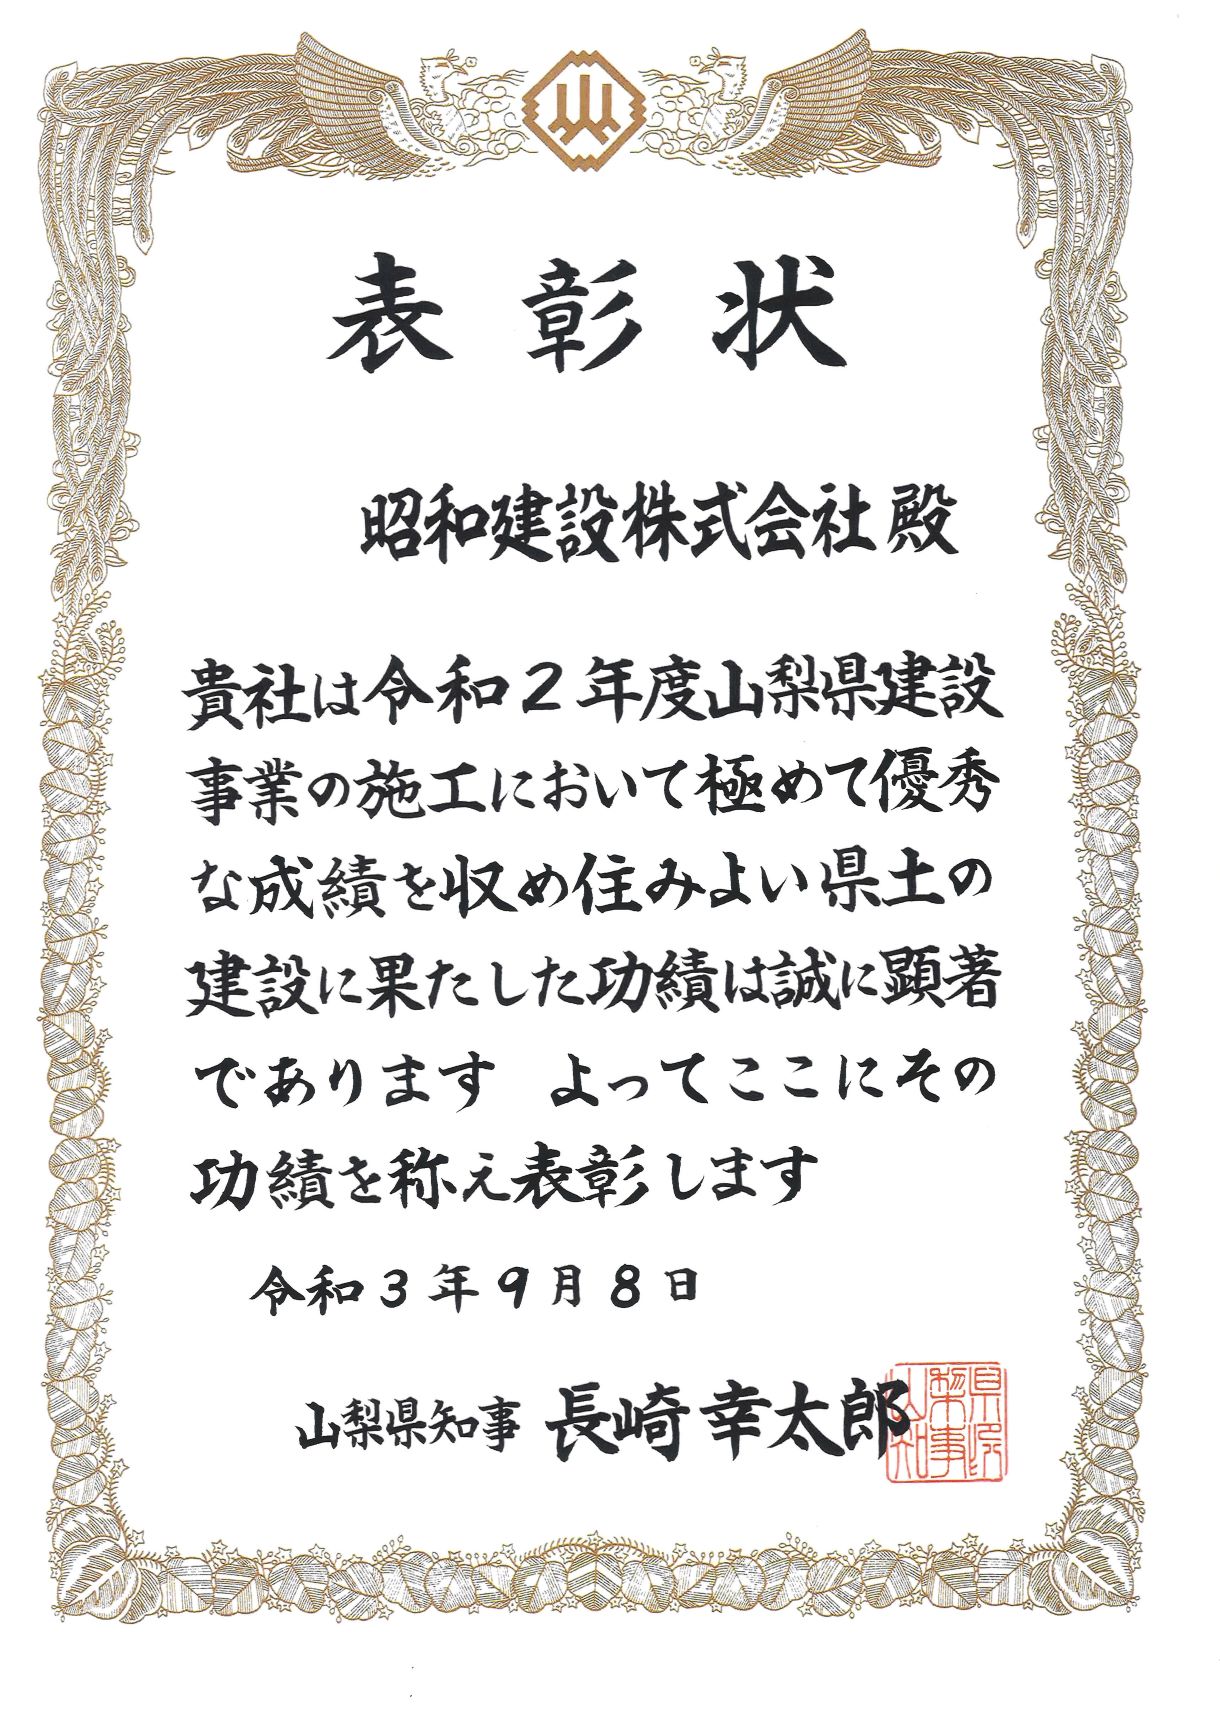 表彰状
昭和建設株式会社殿
貴社は令和2年度山梨県建設
事業の施工において極めて優秀
な成績を収め住みよい県土の
建設に果たした功績は誠に顕著
であります　よってここにその
功績を称え表彰します
令和3年9月8日
山梨県知事 長崎幸太郎